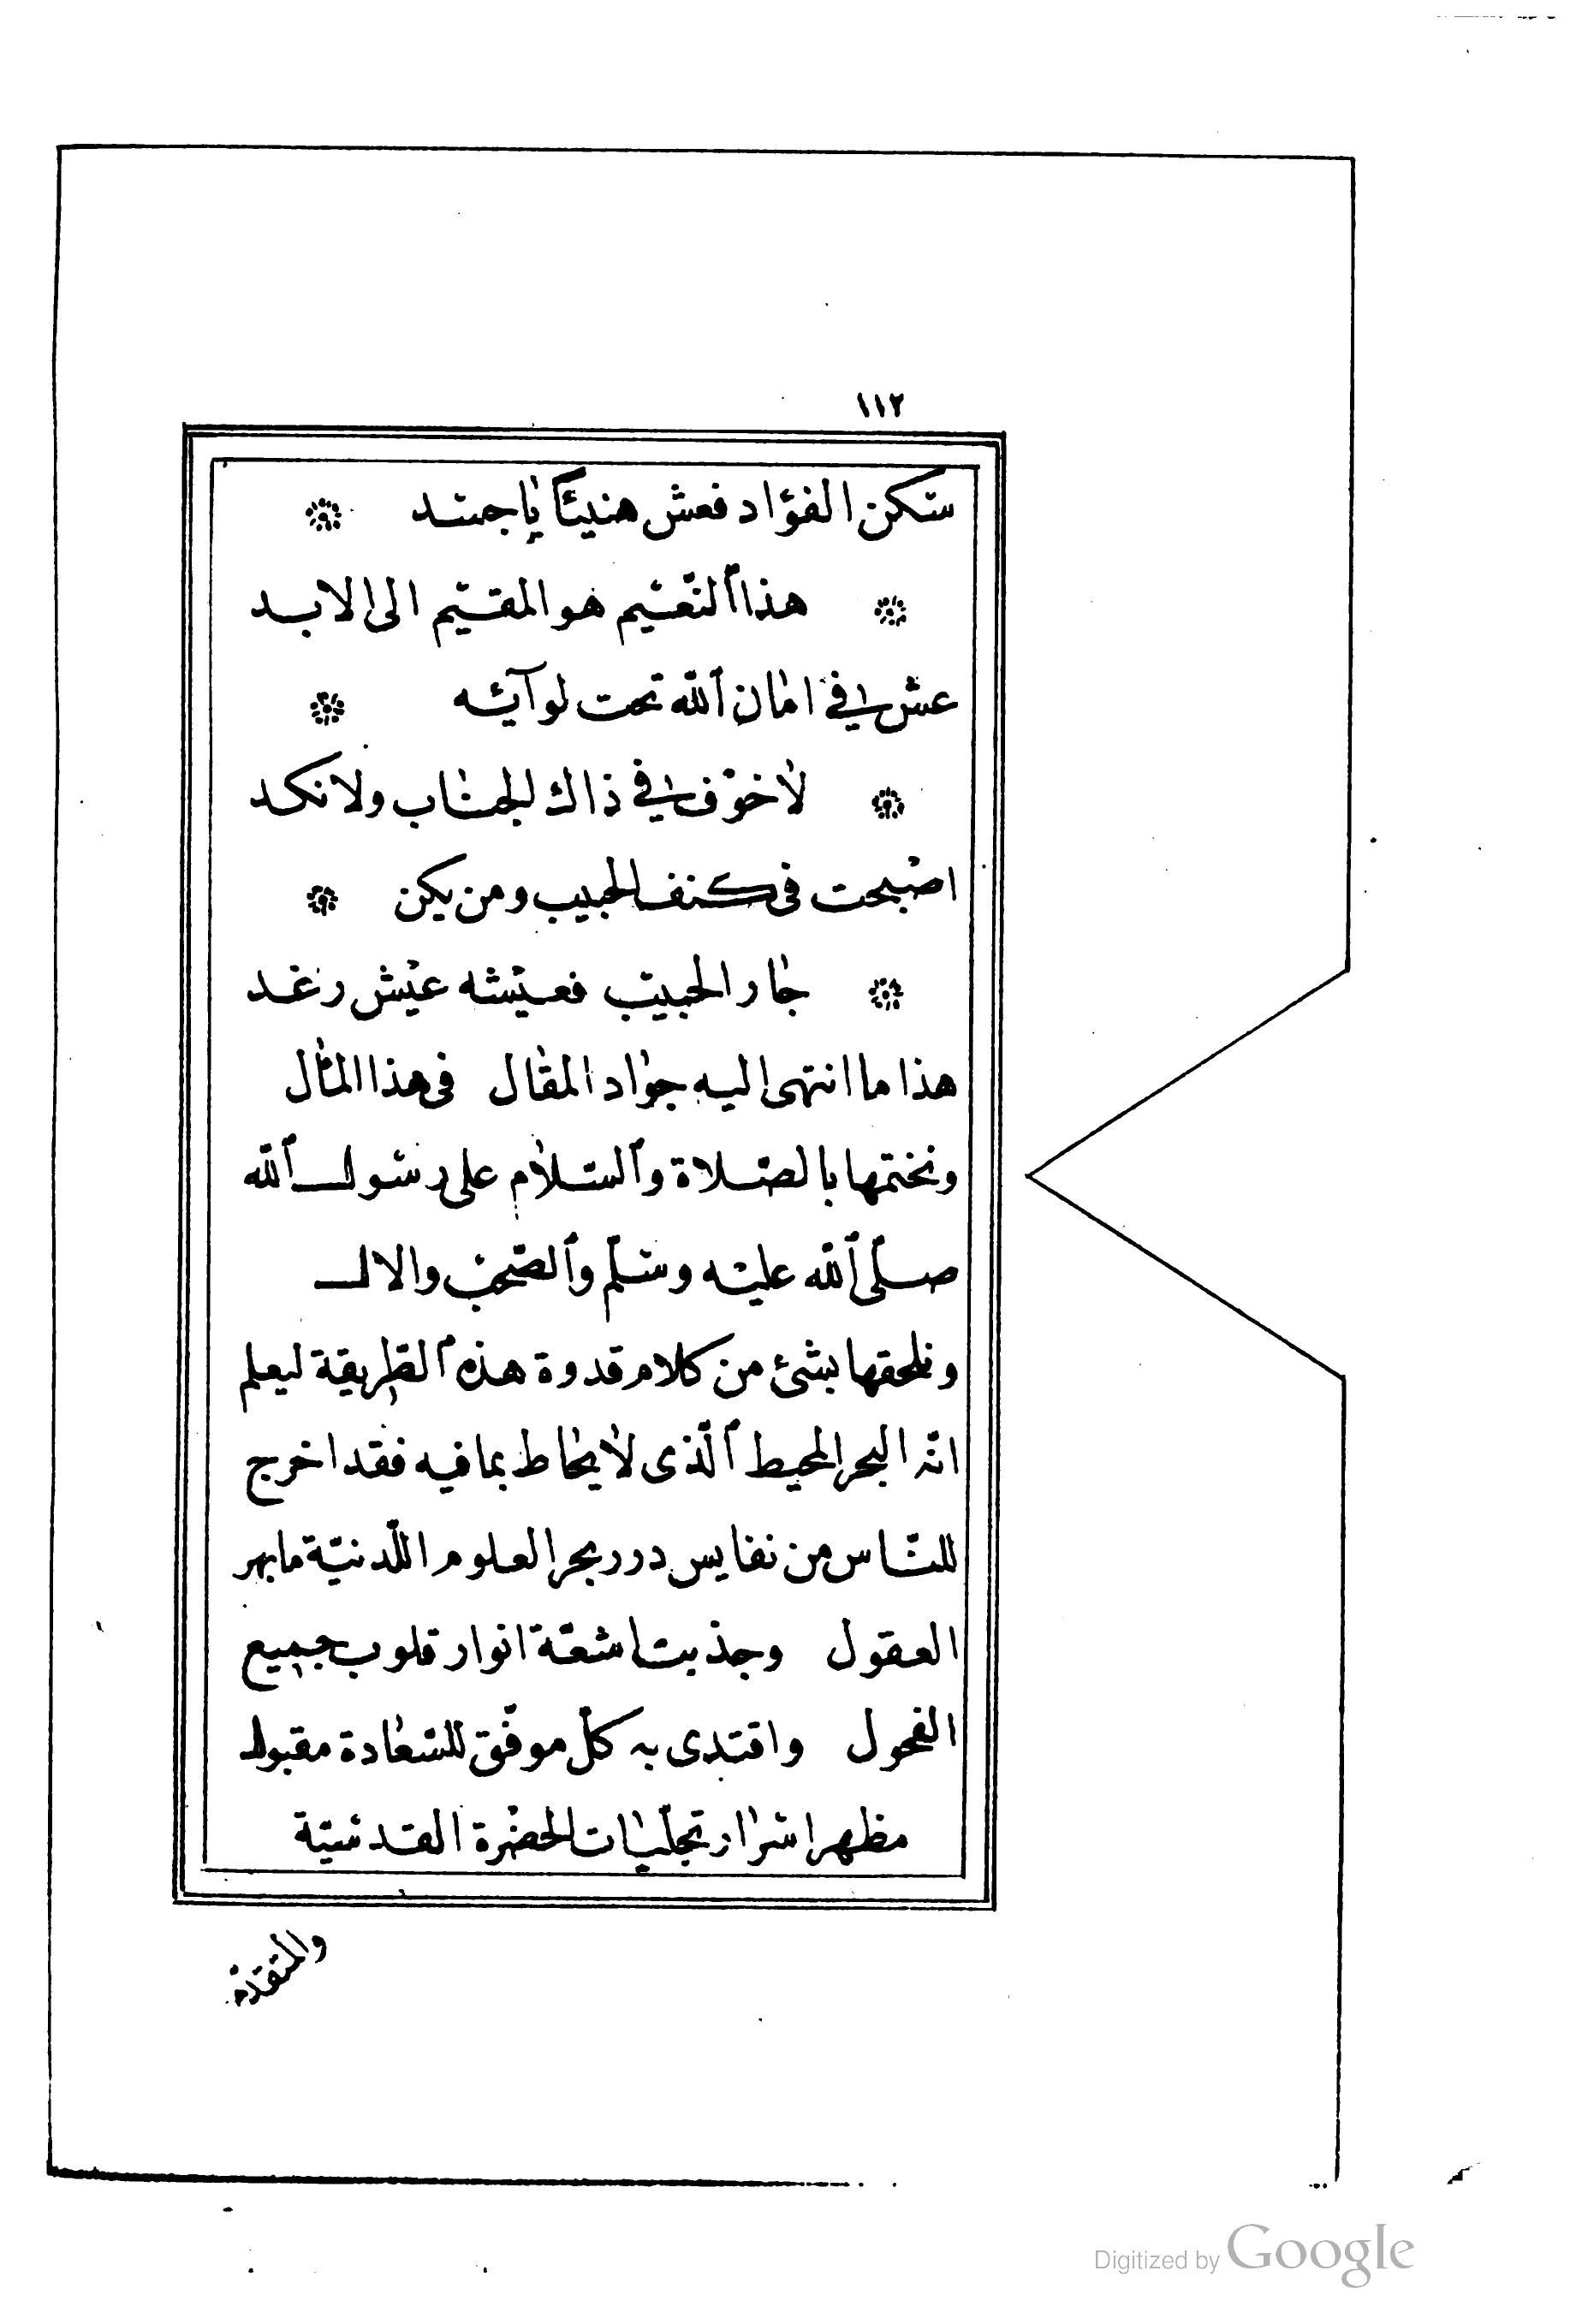 ١١٢
سكن الفؤاد فعش هنيئًا يا جسد
هذا النّعيم هو المقيم الى الابد
عش في امان الله تحت لوآئه
لا خوف في ذاك الجناب ولا نكد
اصبحت في كنف الحبيب ومن يكن
جار الحبيب فعيشه عيش رغد
هذا ما انتهى اليه جواد المقال في هذا المثال
ونختمها بالصّلاة والسّلام على رسول الله
صلّى الله عليه وسلّم والصّحب والال
ونلحقها بشئ من كلام قدوة هذه الطّريقة ليعلم
انّه البحر المحيط الّذى لا يحاط بما فيه فقد اخرج
للنّاس من نفايس درر بحر العلوم اللّدنيّة ما بهر
العقول وجذبت اشعّة انوار قلوب جميع
الفحول واقتدى به كلّ موفّق للسّعادة مقبول
مظهر اسرار تجلّيات الحضرة القدسيّة
Digitized by Google